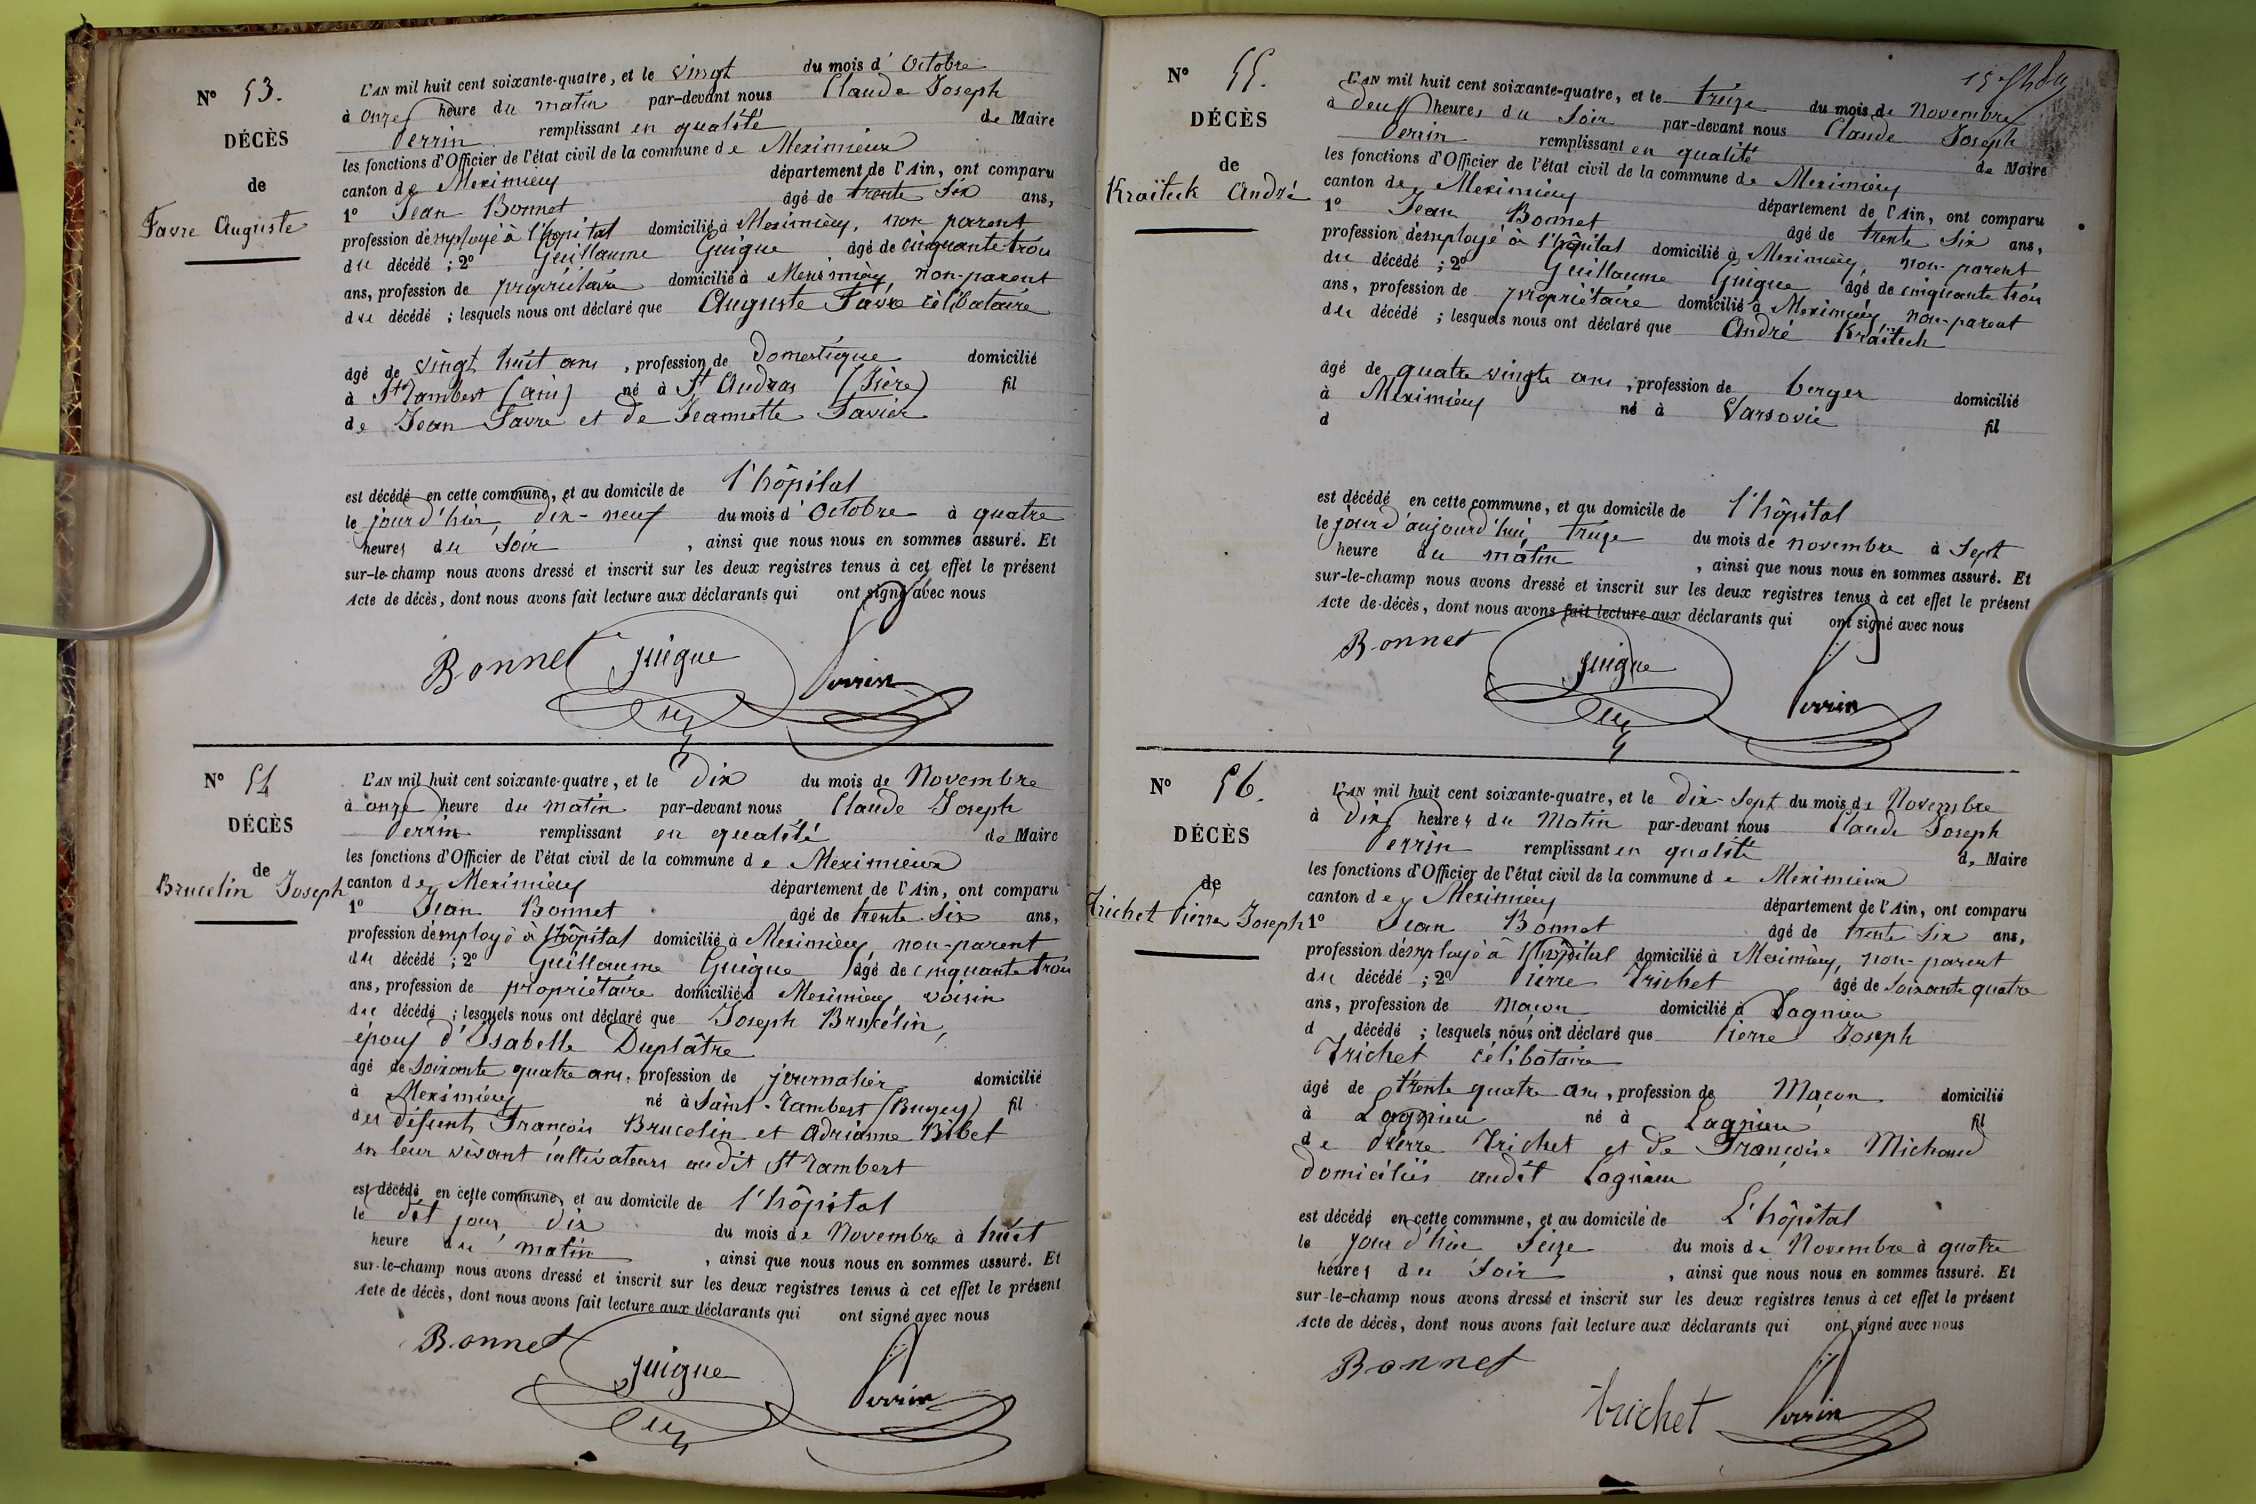 N° 53.
DÉCÈS
de
Favre Auguste
L'AN mil huit cent soixante-quatre, et le vingt du mois d'Octobre
à onze heure du matin par-devant nous Claude Joseph
Perrin remplissant en qualité de Maire
les fonctions d'Officier de l'état civil de la commune de Meximieux
canton de Meximieux département de l'Ain, ont comparu
1° Jean Bonnet âgé de trente six ans,
profession d'employé à l'hôpital domicilié à Meximieux, non parent
du décédé ; 2° Guillaume Guigue âgé de cinquante trois
ans, profession de propriétaire domicilié à Meximieux non-parent
du décédé ; lesquels nous ont déclaré que Auguste Favre célibataire
âgé de vingt huit ans, profession de Domestique domicilié
à St Rambert (ain) né à St Audras (Isère) fil
de Jean Favre et de Jeannette Favier
est décédé en cette commune, et au domicile de l'hôpital
le jour d'hier, dix-neuf du mois d'Octobre à quatre
heures du Soir, ainsi que nous nous en sommes assuré. Et
sur-le-champ nous avons dressé et inscrit sur les deux registres tenus à cet effet le présent
Acte de décès, dont nous avons fait lecture aux déclarants qui ont signé avec nous
Bonnet guigue Perrin
N° 54
DÉCÈS
de
Brucelin Joseph
L'AN mil huit cent soixante-quatre, et le Dix du mois de Novembre
à onze heure du matin par-devant nous Claude Joseph
Perrin remplissant en qualité de Maire
les fonctions d'Officier de l'état civil de la commune de Meximieux
canton de Meximieux département de l'Ain, ont comparu
1° Jean Bonnet âgé de trente Six ans,
profession d'employé à l'hôpital domicilié à Meximieux, non-parent
du décédé ; 2° Guillaume Guigue âgé de cinquante trois
ans, profession de propriétaire domicilié à Meximieux voisin
du décédé ; lesquels nous ont déclaré que Joseph Brucelin,
époux d'Isabelle Duplâtre
âgé de Soixante quatre ans, profession de journalier domicilié
à Meximieux né à Saint-Rambert (Bugey) fil
des défunts François Brucelin et Adrianne Bibet
en leur vivant cultivateurs audit St Rambert
est décédé en cette commune, et au domicile de l'hôpital
le dit jour, dix du mois de Novembre à huit
heure du matin, ainsi que nous nous en sommes assuré. Et
sur-le-champ nous avons dressé et inscrit sur les deux registres tenus à cet effet le présent
Acte de décès, dont nous avons fait lecture aux déclarants qui ont signé avec nous
Bonnet guigue Perrin
N° 55.
DÉCÈS
de
Kraïteck André
L'AN mil huit cent soixante-quatre, et le treize du mois de Novembre
à deux heures du Soir par-devant nous Claude Joseph
Perrin remplissant en qualité de Maire
les fonctions d'Officier de l'état civil de la commune de Meximieux
canton de Meximieux département de l'Ain, ont comparu
1° Jean Bonnet âgé de trente Six ans,
profession d'employé à l'hôpital domicilié à Meximieux, non-parent
du décédé ; 2° Guillaume Guigue âgé de cinquante trois
ans, profession de propriétaire domicilié à Meximieux non-parent
du décédé ; lesquels nous ont déclaré que André Kraïtech
âgé de quatre vingts ans, profession de berger domicilié
à Meximieux né à Varsovie fil
d
est décédé en cette commune, et au domicile de l'hôpital
le jour d'aujourd'hui, treize du mois de novembre à Sept
heure du matin, ainsi que nous nous en sommes assuré. Et
sur-le-champ nous avons dressé et inscrit sur les deux registres tenus à cet effet le présent
Acte de décès, dont nous avons fait lecture aux déclarants qui ont signé avec nous
Bonnet guigue Perrin
N° 56.
DÉCÈS
de
Trichet Pierre Joseph
L'AN mil huit cent soixante-quatre, et le dix-Sept du mois de Novembre
à Dix heures du Matin par-devant nous Claude Joseph
Perrin remplissant en qualité de Maire
les fonctions d'Officier de l'état civil de la commune de Meximieux
canton de Meximieux département de l'Ain, ont comparu
1° Jean Bonnet âgé de trente Six ans,
profession d'employé à l'hôpital domicilié à Meximieux, non-parent
du décédé ; 2° Pierre Trichet âgé de Soixante quatre
ans, profession de Maçon domicilié à Lagnieu
d décédé ; lesquels nous ont déclaré que Pierre Joseph
Trichet célibataire
âgé de trente quatre ans, profession de Maçon domicilié
à Lagnieu né à Lagnieu fil
de Pierre Trichet et de Françoise Michaud
domiciliés audit Lagnieu
est décédé en cette commune, et au domicile de L'hôpital
le jour d'hier Seize du mois de Novembre à quatre
heures du Soir, ainsi que nous nous en sommes assuré. Et
sur-le-champ nous avons dressé et inscrit sur les deux registres tenus à cet effet le présent
Acte de décès, dont nous avons fait lecture aux déclarants qui ont signé avec nous
Bonnet trichet Perrin